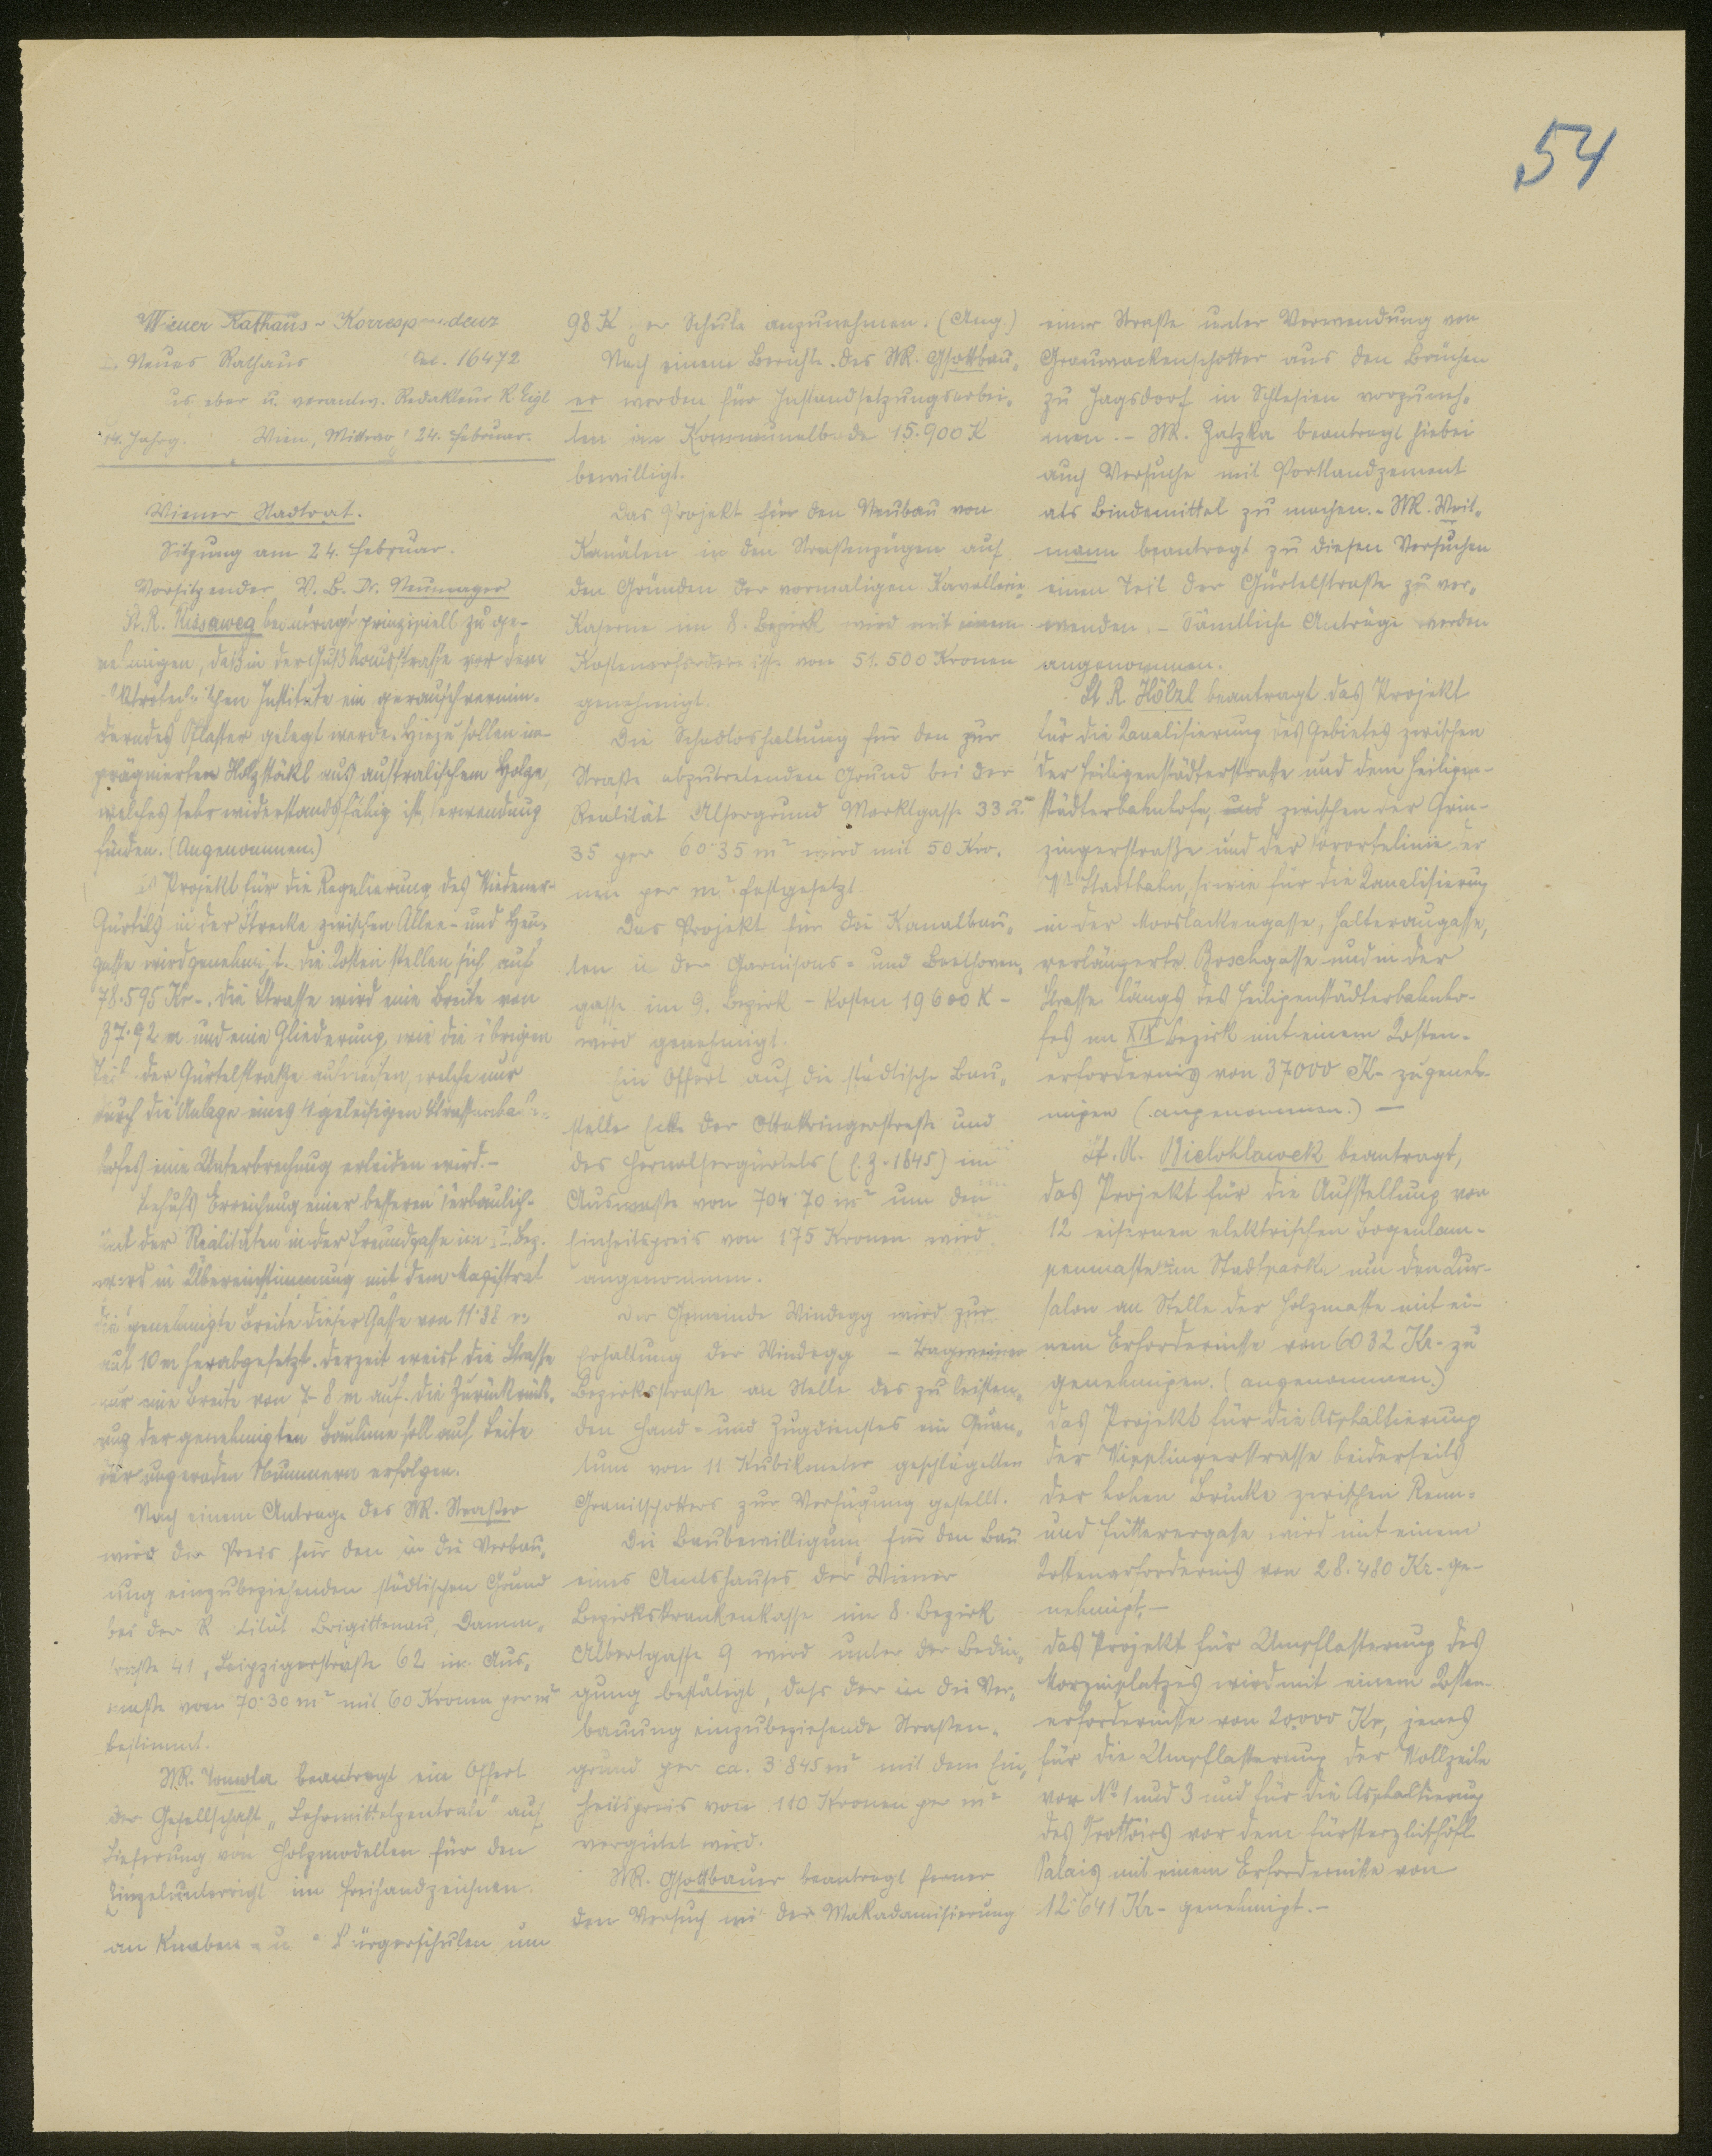 54
Wiener Rathaus-Korrespondenz
Neues Rathaus Tel. 16472
u. verantw. Redakteur R. Eigl
14. Jahrg. Wien, 24. Februar.
Wiener Stadtrat.
Sitzung am 24. Februar.
Vorsitzender V. B. Dr. Neumayer
St. R. beantragt prinzipiell zu ge-
nehmigen, daß in der Gußhausstrasse vor dem
Institute ein geräuschvermin-
derndes Pflaster gelegt werde. Hiezu sollen im-
prägnierten Holzstöckl aus australischem Holze,
welches sehr widerstandsfähig ist, Verwendung
finden. (Angenommen.)
Projekt für die Regulierung des Wiedener-
Gürtels in der Strecke zwischen Allee- und Heu-
gasse wird genehmigt. Die Kosten stellen sich auf
78.595 Kr-. Die Strasse wird eine Breite von
37·92 m und eine Gliederung, wie die übrigen
Teile der Gürtelstraße aufweisen, welche nur
durch die Anlage eines 4 geleisigen
hofes eine Unterbrechung erleiden wird.-
Behufs Erreichung einer besseren Verbaulich-
keit der Realitäten in der Freundgasse im Bez.
wird in Übereinstimmung mit dem Magistrat
die genehmigte Breite dieser Gasse von 11·38 m
auf 10 m herabgesetzt. Derzeit weist die Strasse
nur eine Breite von 7-8 m auf. Die Zurückrück-
ung der genehmigten Baulinie soll auf Seite
der ungeraden Nummern erfolgen.
Nach einem Antrage des StR. Straßer
wird der Preis für den in die Verbau-
ung einzubeziehenden städtischen Grund
bei der Brigittenau, Damm-
straße 41, Leipzigerstraße 62 im Aus-
maße von 70·30 m² mit 60 Kronen per m²
bestimmt.
StR. Tomola beantragt ein Offert
der Gesellschaft „Lehrmittelzentrale" auf
Lieferung von Holzmodellen für den
Einzelunterricht im Freihandzeichnen
an Knaben- u. Bürgerschulen um
98 K per Schule anzunehmen. (Ang.)
Nach einem Berichte des StR. Gsottbau-
er werden für Instandsetzungsarbei-
ten im 15.900 K
bewilligt.
Das Projekt für den Neubau von
Kanälen in den Straßenzügen auf
den Gründen der vormaligen Kavallerie-
Kaserne im 8. Bezirk wird mit einem
Kostenerfordernisse von 51.500 Kronen
genehmigt.
Die Schadloshaltung für den zur
Straße abzutretenden Grund bei der
Realität Alsergrund Marktgasse 33 u.
35 per 60·35 m² wird mit 50 Kro-
nen per m² festgesetzt
Das Projekt für die Kanalbau-
ten in der Garnisons- und Beethoven-
gasse im 9. Bezirk - Kosten 19600 K -
wird genehmigt.
Ein Offert auf die städtische Bau-
stelle Ecke der Ottakringerstraße und
des Hernalsergürtels (E. Z. 1845) im
Ausmaße von 704·70 m² um den
Einheitspreis von 175 Kronen wird
angenommen.
Der Gemeinde Windegg wird zur
Erhaltung der Windegg -
Bezirksstraße an Stelle des zu leisten-
den Hand- und Zugdienstes ein Quan-
tum von 11 Kubikmeter geschlägelten
Granitschotters zur Verfügung gestellt.
Die Baubewilligung für den Bau
eines Amtshauses der Wiener
Bezirkskrankenkasse im 8. Bezirk
Albertgasse 9 wird unter der Bedin-
gung bestätigt, dass der in die Ver-
bauung einzubeziehende Straßen-
grund per ca. 3·845 m² mit dem Ein-
heitspreis von 110 Kronen per m²
vergütet wird.
StR. Gsottbauer beantragt ferner
den Versuch mit der Makadamisierung
einer Straße unter Verwendung von
Grauwackenschotter aus den Brüchen
zu Jagsdorf in Schlesien vorzuneh-
men. - StR. Zatzka beantragt hiebei
auch Versuche mit Portlandzement
als Bindemittel zu machen. - StR. Weit-
mann beantragt zu diesen Versuchen
einen Teil der Gürtelstraße zu ver-
wenden. - Sämtliche Anträge werden
angenommen.
St. R. Hölzl beantragt das Projekt
für die Kanalisierung des Gebietes zwischen
der Heiligenstädterstrasse und dem Heiligen-
städterbahnhofe, und zwischen der Grin-
zingerstraße und der Vorortelinie der
Stadtbahn, sowie für die Kanalisierung
in der Mooslackengasse, Halteraugasse,
verlängerte Boschgasse und in der
Strasse längs des Heiligenstädterbahnho-
fes im XIX Bezirk mit einem Kosten-
erfordernis von 37000 K- zu geneh-
migen (angenommen.) —
St. R. Bielohlawek beantragt,
das Projekt für die Aufstellung von
12 eisernen elektrischen Bogenlam-
penmaste im Stadtparke um den Kur-
salon an Stelle der Holzmaste mit ei-
nem Erfordernisse von 6032 Kr- zu
genehmigen. (angenommen.)
Das Projekt für die Asphaltierung
der Wipplingerstrasse beiderseits
der hohen Brücke zwischen Renn-
und Fütterergasse wird mit einem
Kostenerfordernis von 28.480 Kr- ge-
nehmigt.-
Das Projekt für Umpflasterung des
Morzinplatzes wird mit einem Kosten-
erfordernisse von 20.000 Kr, jenes
für die Umpflasterung der Wollzeile
vor No 1 und 3 und für die Asphaltierung
des Trottoirs vor dem fürsterzbischöfl.
Palais mit einem Erfordernisse von
12·641 Kr- genehmigt.-